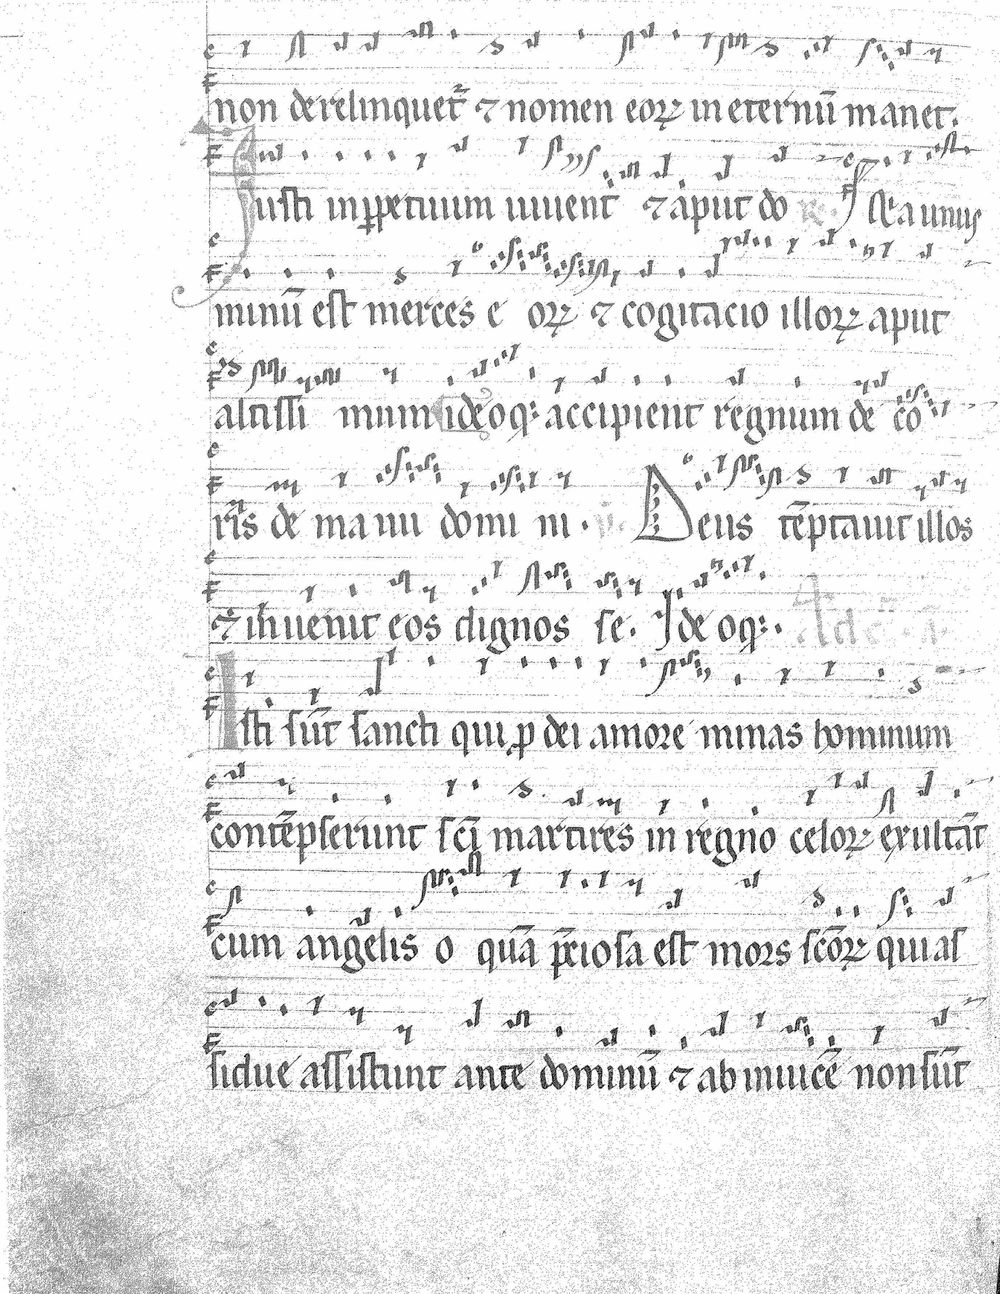 non derelinquet᷑ ⁊ nomen eoꝝ in eternū manet.
Iusti inꝑpetuum uiuent ⁊ aput do ℟. I
minū est merces e oꝝ ⁊ cogitacio illoꝝ aput
altissi mum ideoq: accipient regnum de co
ris de ma nu domi ni. ℣. Deus tēptauit illos
⁊ inuenit eos dignos se. Ideoq:.
Isti sūt sancti qui ꝓ dei amore minas hominum
contēpserunt sc̄i martires in regno celoꝝ exultāt
cum angelis o quā p̄ciosa est mors sc̄oꝝ qui as
sidue assistunt ante dominū ⁊ ab inuicē non sūt